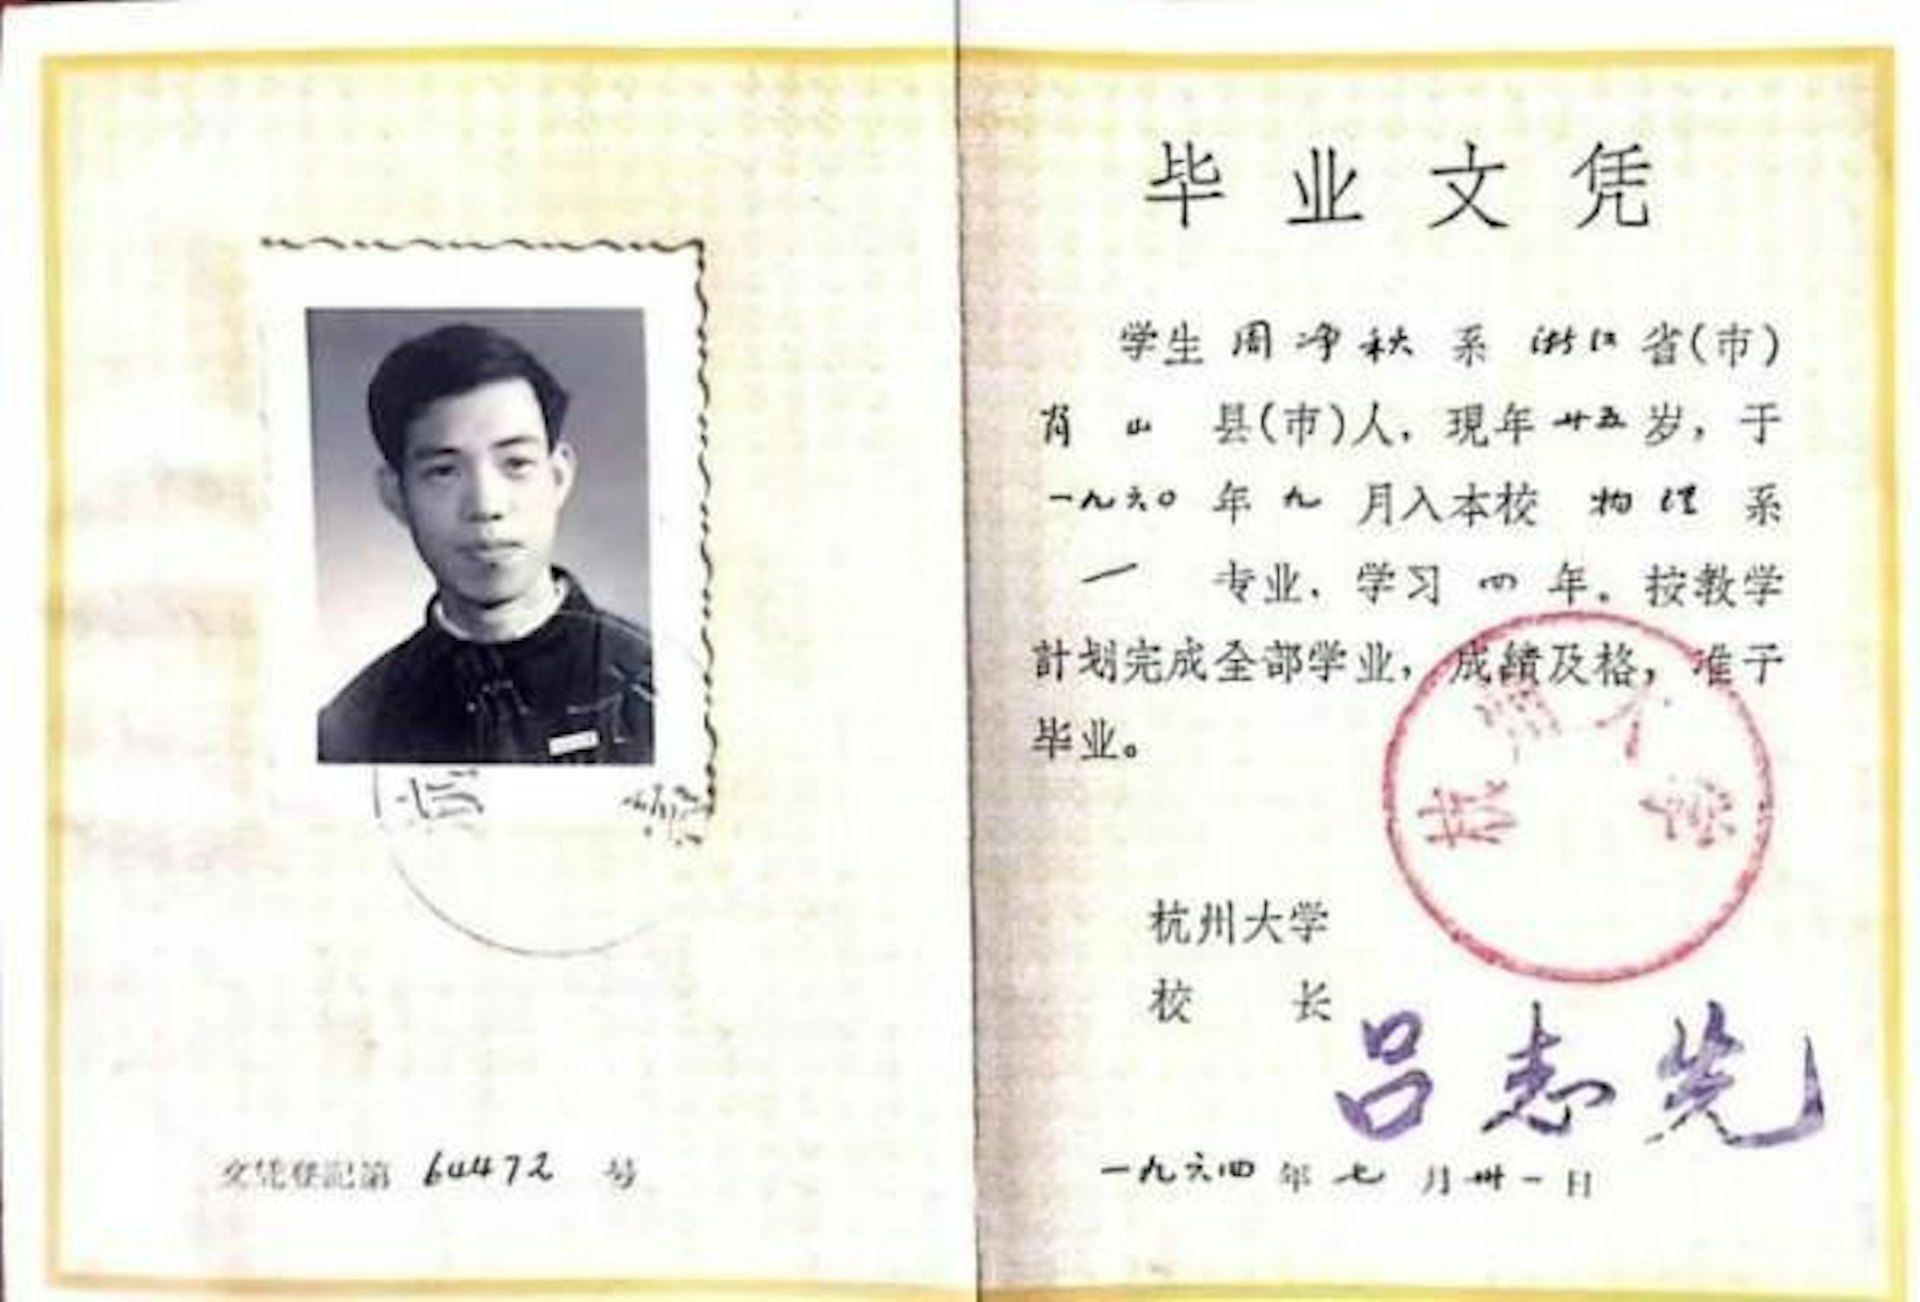 文凭登記第 64472 号
毕业文凭
学生 周净秋 系 浙江 省(市)
肖山 县(市)人，現年 廿五 岁，于
一九六〇 年 九 月入本校 物理 系
一 专业，学习 四 年。按教学
計划完成全部学业，成績及格，准予
毕业。
杭州大学
校 长
吕志先
一九六四 年 七 月 卅一 日